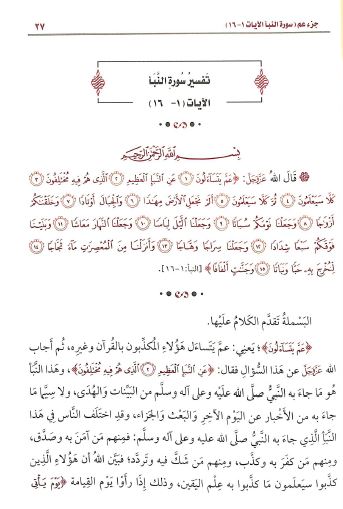 جزء عم (سورة النبأ الآيات ١ - ١٦) ٢٧
تفسير سورة النبأ
الآيات (١ - ١٦)
بِسْمِ اللَّهِ الرَّحْمَٰنِ الرَّحِيمِ
قال اللهُ عَزَّوَجَلَّ: ﴿عَمَّ يَتَسَاءَلُونَ ۝١ عَنِ النَّبَإِ الْعَظِيمِ ۝٢ الَّذِي هُمْ فِيهِ مُخْتَلِفُونَ ۝٣
كَلَّا سَيَعْلَمُونَ ۝٤ ثُمَّ كَلَّا سَيَعْلَمُونَ ۝٥ أَلَمْ نَجْعَلِ الْأَرْضَ مِهَادًا ۝٦ وَالْجِبَالَ أَوْتَادًا ۝٧ وَخَلَقْنَاكُمْ
أَزْوَاجًا ۝٨ وَجَعَلْنَا نَوْمَكُمْ سُبَاتًا ۝٩ وَجَعَلْنَا اللَّيْلَ لِبَاسًا ۝١٠ وَجَعَلْنَا النَّهَارَ مَعَاشًا ۝١١ وَبَنَيْنَا
فَوْقَكُمْ سَبْعًا شِدَادًا ۝١٢ وَجَعَلْنَا سِرَاجًا وَهَّاجًا ۝١٣ وَأَنزَلْنَا مِنَ الْمُعْصِرَاتِ مَاءً ثَجَّاجًا ۝١٤
لِّنُخْرِجَ بِهِ حَبًّا وَنَبَاتًا ۝١٥ وَجَنَّاتٍ أَلْفَافًا﴾ [النبأ:١-١٦].
البَسملةُ تقدَّم الكلامُ عليْها.
﴿عَمَّ يَتَسَاءَلُونَ﴾؛ يعني: عمَّ يتساءَل هَؤُلاءِ المُكذِّبون بالقُرآن وغيرِه، ثُم أجاب
الله عَزَّوَجَلَّ عن هَذا السُّؤالِ فقال: ﴿عَنِ النَّبَإِ الْعَظِيمِ ۝٢ الَّذِي هُمْ فِيهِ مُخْتَلِفُونَ﴾، وهَذا النَّبأُ
هُو مَا جاءَ به النَّبيُّ صلَّى الله عليه وعلى آله وسلَّم من البَيِّنات والهُدَى، ولا سِيَّما مَا
جاءَ به من الأَخبار عن اليَوْمِ الآخِرِ والبَعْثِ والجَزاء، وقدِ اختلَف النَّاس في هَذا
النَّبأِ الَّذي جاءَ به النَّبيُّ صلى الله عليه وعلى آله وسلم: فمِنهم مَن آمَن به وصَدَّق،
ومِنهم مَن كفَر به وكذَّب، ومِنهم مَن شَكَّ فيه وتَردَّد؛ فبَيَّن اللهُ أن هَؤُلاءِ الَّذين
كذَّبوا سيَعلَمون مَا كذَّبوا به عِلْمَ اليَقين، وذلك إذا رأَوْا يَوْم القِيامة ﴿يَوْمَ يَأْتِي